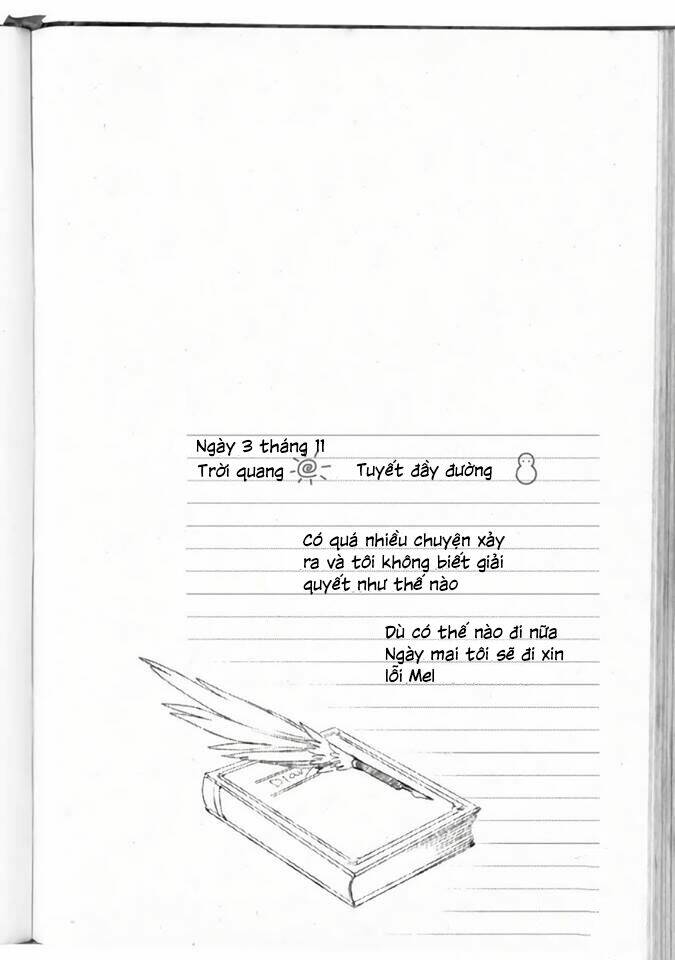 Ngày 3 tháng 11
Trời quang Tuyết đầy đường
Có quá nhiều chuyện xảy
ra và tôi không biết giải
quyết như thế nào
Dù có thế nào đi nữa
Ngày mai tôi sẽ đi xin
lỗi Mel